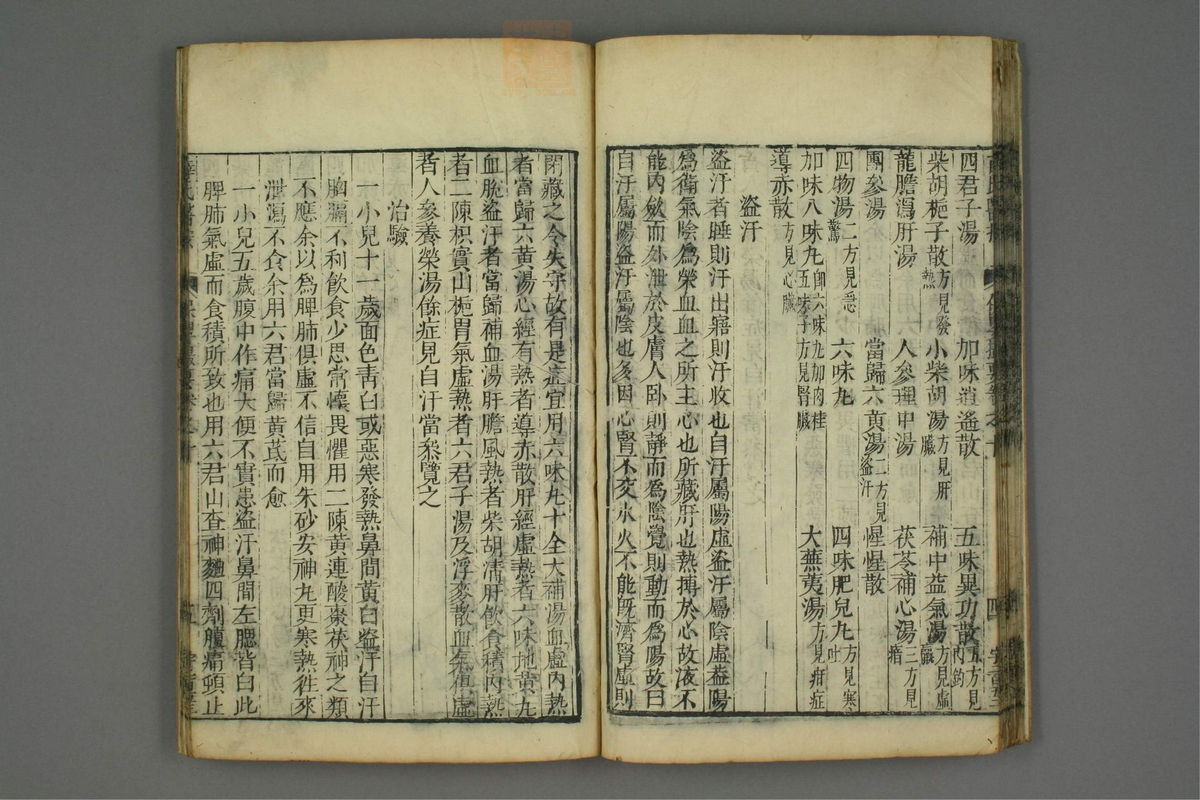 四君子湯 加味逍遙散 五味異功散五方見內釣
柴胡梔子散方見發熱 小柴胡湯方見肝臟 補中益氣湯方見虛羸
龍膽瀉肝湯 人參理中湯 茯苓補心湯三方見瘖
團參湯 當歸六黃湯二方見盜汗 惺惺散
四物湯二方見急驚 六味丸 四味肥兒丸方見寒吐
加味八味丸即六味丸加肉桂五味子方見腎臟 大蕪荑湯方見疳症
導赤散方見心臟
盜汗
盜汗者睡則汗出寤則汗收也自汗屬陽虛盜汗屬陰虛葢陽
為衛氣陰為榮血血之所主心也所藏肝也熱搏於心故液不
能內斂而外泄於皮膚人卧則靜而為陰覺則動而為陽故曰
自汗屬陽盜汗屬陰也多因心腎不交水火不能旣濟腎虛則
閉藏之令失守故有是症宜用六味丸十全大補湯血虛內熱
者當歸六黃湯心經有熱者導赤散肝經虛熱者六味地黃丸
血脫盜汗者當歸補血湯肝膽風熱者柴胡清肝飲食積內熱
者二陳枳實山梔胃氣虛熱者六君子湯及浮麥散血氣俱虛
者人參養榮湯餘症見自汗當叅覽之
治驗
一小兒十一歲面色青白或惡寒發熱鼻間黃白盜汗自汗
胸膈不利飲食少思常懷畏懼用二陳黃連酸棗茯神之類
不應余以為脾肺俱虛不信自用朱砂安神丸更寒熱徃來
泄瀉不食余用六君當歸黃芪而愈
一小兒五歲腹中作痛大便不實患盜汗鼻間左腮皆白此
脾肺氣虛而食積所致也用六君山查神麯四劑腹痛頓止